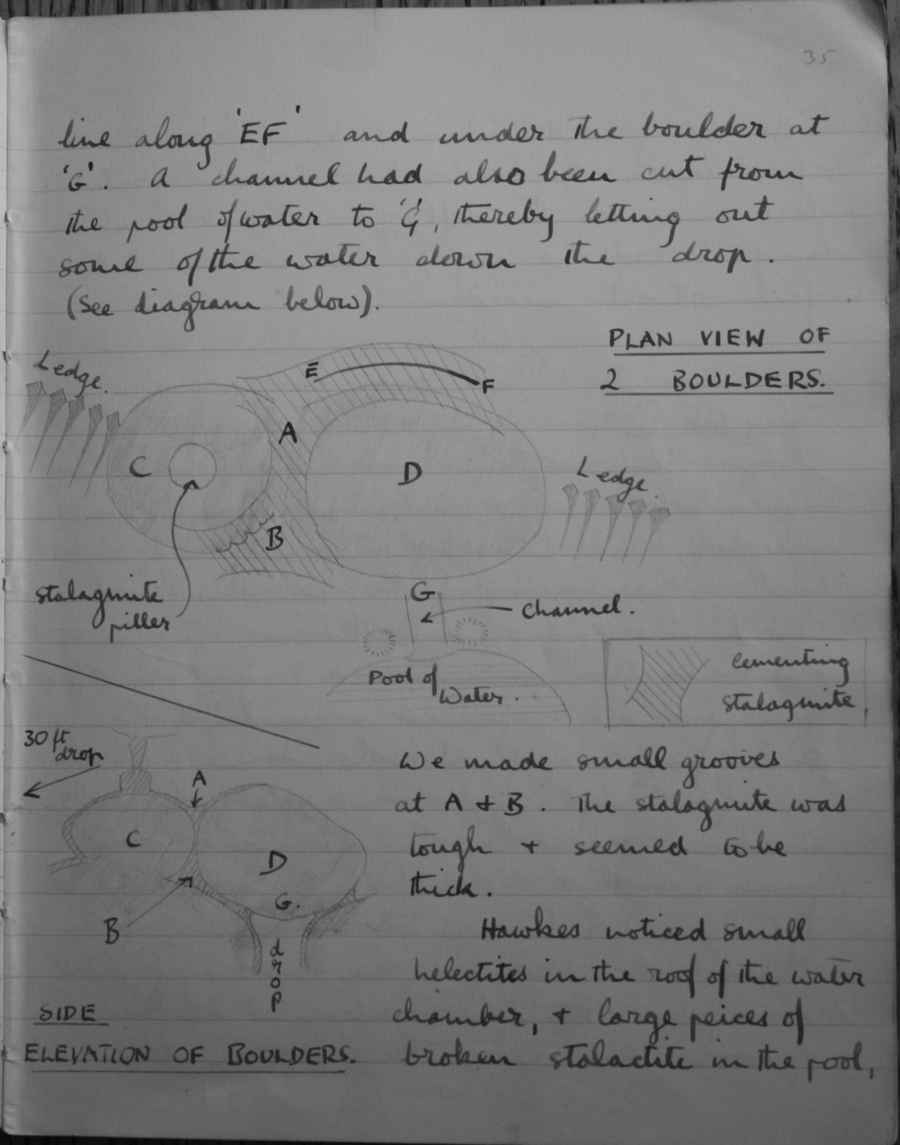 35
line along 'EF' and under the boulder at
'G'. A channel had also been cut from
the pool of water to 'G', thereby letting out
some of the water down the drop.
(See diagram below).
PLAN VIEW OF
2 BOULDERS.
Ledge.
E
F
A
C
D
Ledge.
B
stalagmite
piller
G
Channel.
Pool of
Water.
cementing
stalagmite.
30 ft
drop
A
C
D
G.
B
drop
SIDE
ELEVATION OF BOULDERS.
We made small grooves
at A & B. The stalagmite was
tough & seemed to be
thick.
Hawkes noticed small
helectites in the roof of the water
chamber, & large peices of
broken stalactite in the pool,